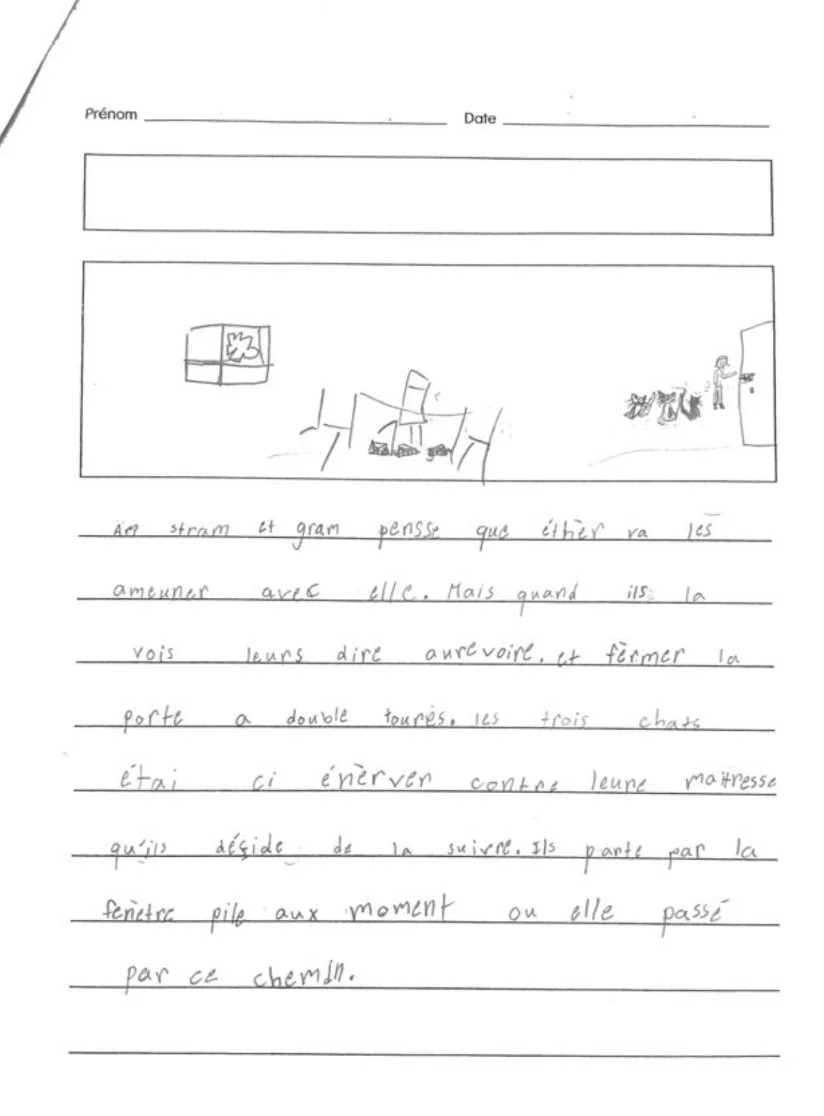 Prénom
Date
Am stram et gram pensse que éthèr va les
ameuner avec elle. Mais quand ils la
vois leurs dire aurevoire. et fèrmer la
porte a double tourés. les trois chats
étai ci énèrver contre leure maitresse
qu'ils déçide de la suivre. Ils parte par la
fenètre pile aux moment ou elle passé
par ce chemin.